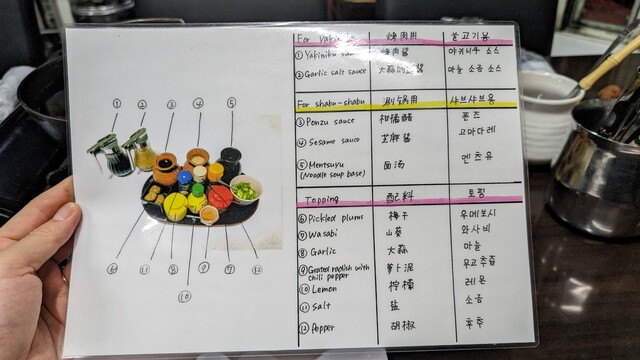 ① ② ③ ④ ⑤
⑥ ⑪ ⑧ ⑨ ⑦ ⑫
⑩
For 烤肉用 불고기용
① Yakiniku sauce 烤肉酱 야키니쿠 소스
② Garlic salt sauce 大蒜 酱 마늘 소금 소스
For shabu-shabu 涮锅用 샤브샤브용
③ Ponzu sauce 柑橘醋 폰즈
④ Sesame sauce 芝麻酱 고마다레
⑤ Mentsuyu 面汤 멘츠유
(Noodle soup base)
Topping 配料 토핑
⑥ Pickled plums 梅子 우메보시
⑦ Wasabi 山葵 와사비
⑧ Garlic 大蒜 마늘
⑨ Grated radish with 萝卜泥
chili pepper
⑩ Lemon 柠檬 레몬
⑪ Salt 盐 소금
⑫ Pepper 胡椒 후추